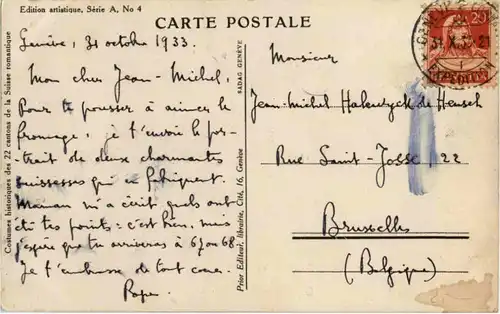 Edition artistique, Série A, No 4
CARTE POSTALE
Genève, 31 octobre 1933.
Mon cher Jean-Michel,
Pour te pousser à aimer le
fromage, je t'envoie le por-
trait de deux charmantes
suissesses qui en fabriquent.
Maman m'a écrit quels ont
été tes points: c'est bien, mais
j'espère que tu arriveras à 67 ou 68.
Je t'embrasse de tout coeur.
Papa.
Costumes historiques des 22 cantons de la Suisse romantique
SADAG GENÈVE
Prior Editeur, librairie, Cité, 16, Genève
Monsieur
Jean-Michel de Heusch
Rue Saint-Josse, 22
Bruxelles
(Belgique)
20
31.X.33.21